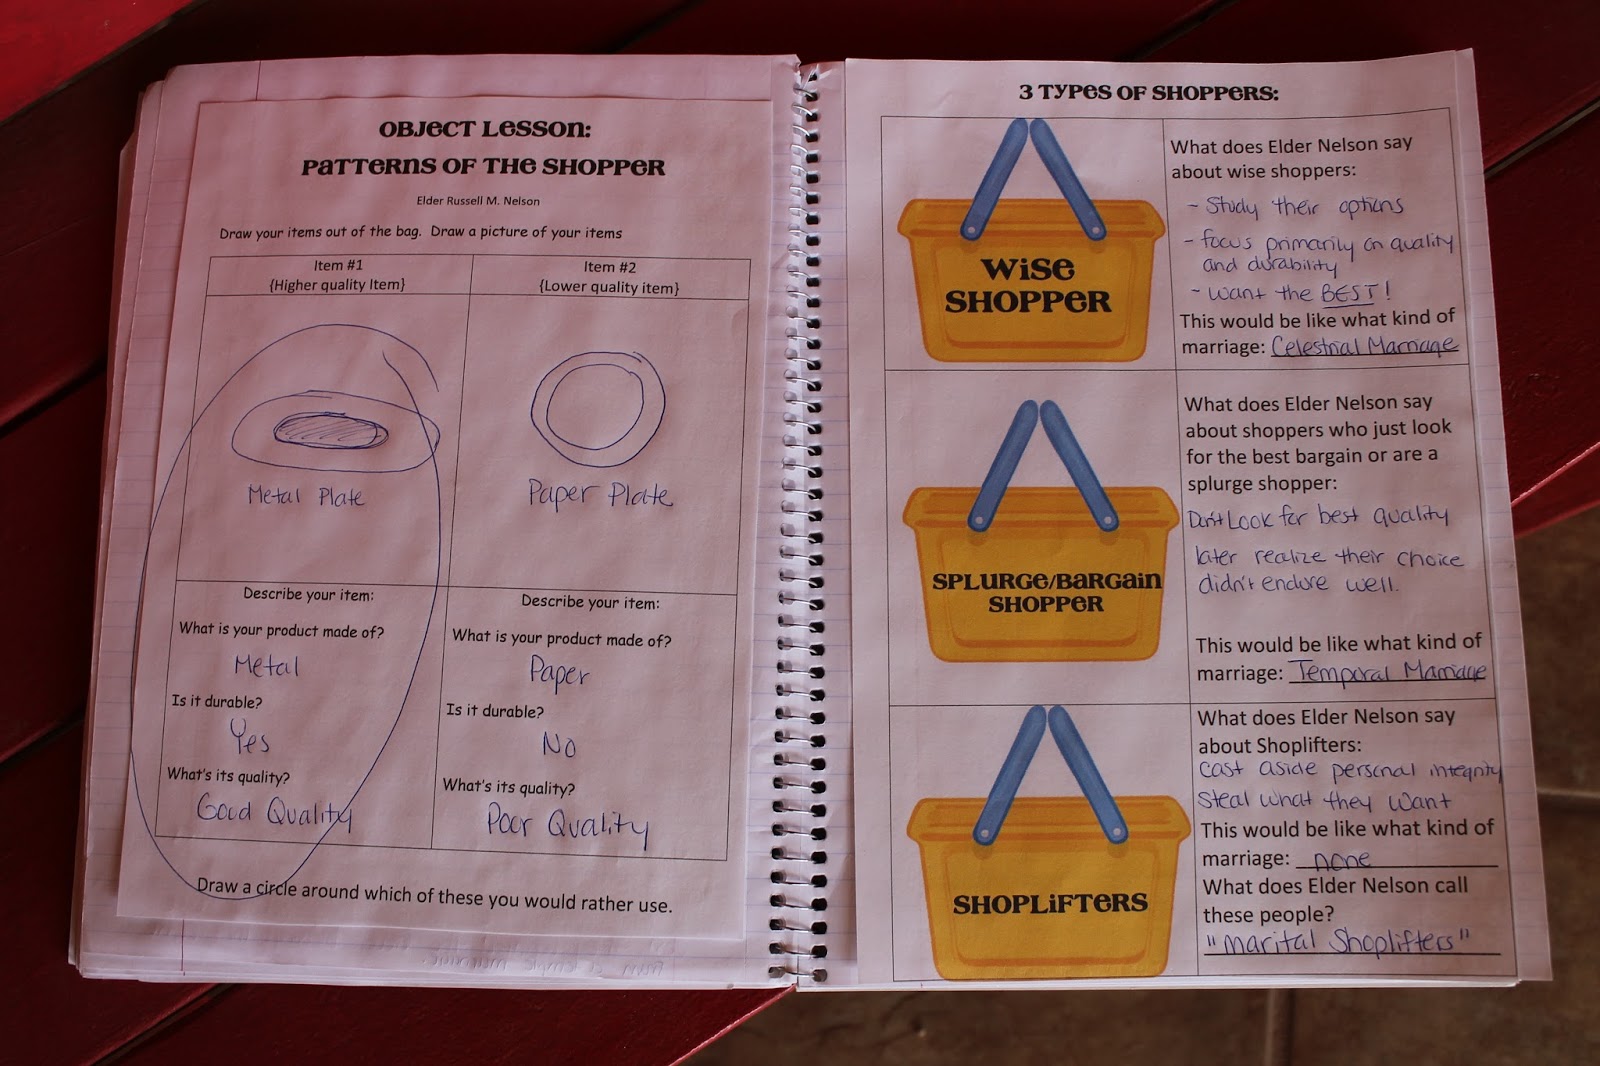 OBJECT LESSON:
PATTERNS OF THE SHOPPER
Elder Russell M. Nelson
Draw your items out of the bag. Draw a picture of your items
Item #1
{Higher quality Item}
Item #2
{Lower quality item}
Metal Plate
Paper Plate
Describe your item:
What is your product made of?
Metal
Is it durable?
Yes
What's its quality?
Good Quality
Describe your item:
What is your product made of?
Paper
Is it durable?
No
What's its quality?
Poor Quality
Draw a circle around which of these you would rather use.
3 TYPES OF SHOPPERS:
WISE
SHOPPER
What does Elder Nelson say
about wise shoppers:
- Study their options
- focus primarily on quality
and durability
- want the BEST!
This would be like what kind of
marriage: Celestrial Marriage
SPLURGE/BARGAIN
SHOPPER
What does Elder Nelson say
about shoppers who just look
for the best bargain or are a
splurge shopper:
Don't Look for best quality
later realize their choice
didn't endure well.
This would be like what kind of
marriage: Temporal Marriage
SHOPLIFTERS
What does Elder Nelson say
about Shoplifters:
cast aside personal integrity
steal what they want
This would be like what kind of
marriage: none
What does Elder Nelson call
these people?
"marital Shoplifters"